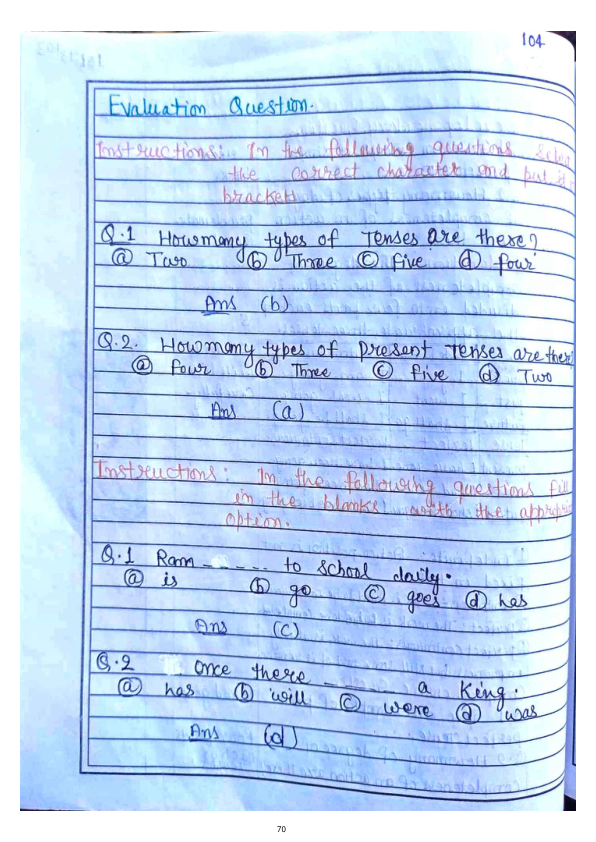 104
Evaluation Question.
Instructions: In the following questions
the correct character and put
brackets
Q.1 Howmany types of Tenses are these?
(a) Two (b) Three (c) five (d) four
Ans (b)
Q.2. Howmany types of present Tenses are
(a) four (b) Three (c) five (d) Two
Ans (a)
Instructions: In the following questions fill
in the blanks with the
option.
Q.1 Ram _ _ _ _ _ to school daily.
(a) is (b) go (c) goes (d) has
Ans (c)
Q.2 once there _ _ _ _ a King.
(a) has (b) will (c) were (d) was
Ans (d)
70